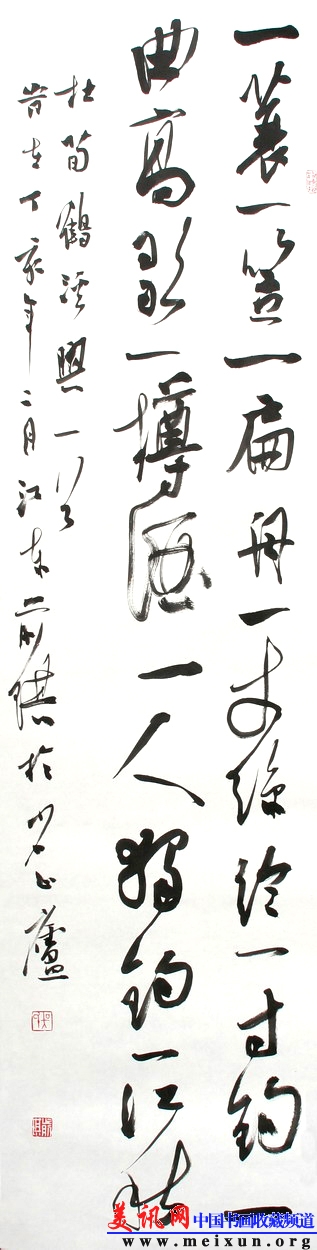 一蓑一笠一扁舟一丈絲綸一寸鉤一
曲高歌一樽酒一人獨釣一江秋
杜荀鶴溪興一首
在丁亥年二月江東於廬
美讯网 中国书画收藏频道
www.meixun.org